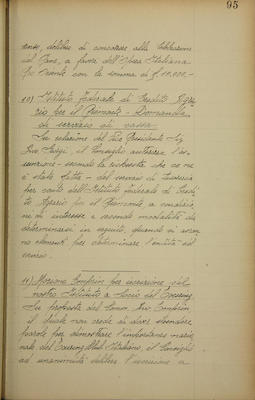 95
delibera di concorrere alla
del Pane, a favore dell'Opera Italiana
Pro Oriente con la somma di £ 10.000.-
10) Istituto Federale di Credito Agra-
rio per il Piemonte - Domanda
di servizio di cassa.
Su relazione del Vice Presidente Sig.
il Consiglio autorizza l'as-
sunzione - secondo la richiesta che ce ne
è stata fatta - del servizio di Tesoreria
per conto dell'Istituto Federale di Credi-
to Agrario per il Piemonte a condizio
ne di interesse e secondo modalità da
determinarsi in seguito, quando si avran
no elementi per determinare l'entità del
servizio.
11) Mozione per iscrizione del
nostro Istituto a Socio del Touring
Su proposta del Comm. Avv.
il quale non crede di dover spendere
parole per dimostrare l'importanza nazio
nale del Touring Club Italiano, il Consiglio
ad unanimità delibera l'iscrizione a